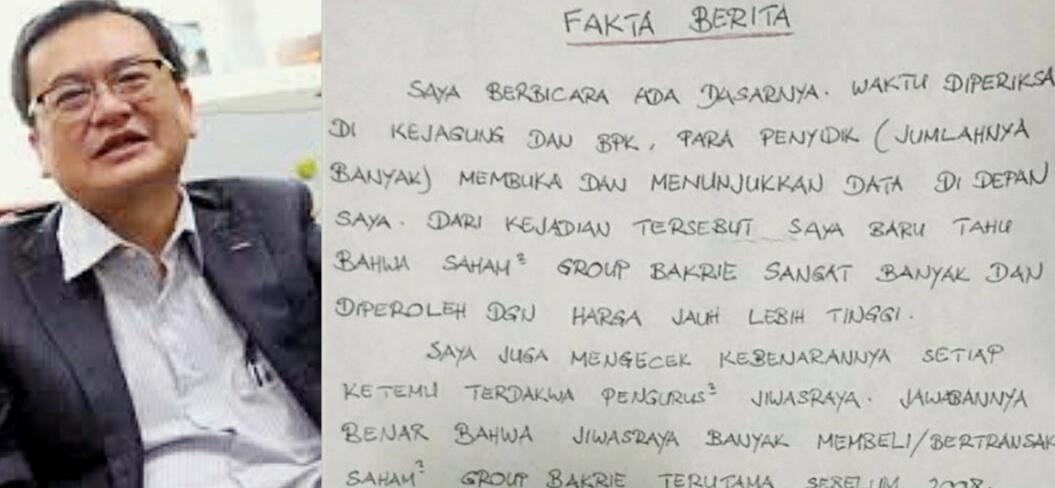 FAKTA BERITA
SAYA BERBICARA ADA DASARNYA. WAKTU DIPERIKSA
DI KEJAGUNG DAN BPK, PARA PENYIDIK (JUMLAHNYA
BANYAK) MEMBUKA DAN MENUNJUKKAN DATA DI DEPAN
SAYA. DARI KEJADIAN TERSEBUT SAYA BARU TAHU
BAHWA SAHAM² GROUP BAKRIE SANGAT BANYAK DAN
DIPEROLEH DGN HARGA JAUH LEBIH TINGGI.
SAYA JUGA MENGECEK KEBENARANNYA SETIAP
KETEMU TERDAKWA PENGURUS² JIWASRAYA. JAWABANNYA
BENAR BAHWA JIWASRAYA BANYAK MEMBELI/BERTRANSAK
SAHAM² GROUP BAKRIE TERUTAMA SEBELUM 2008.